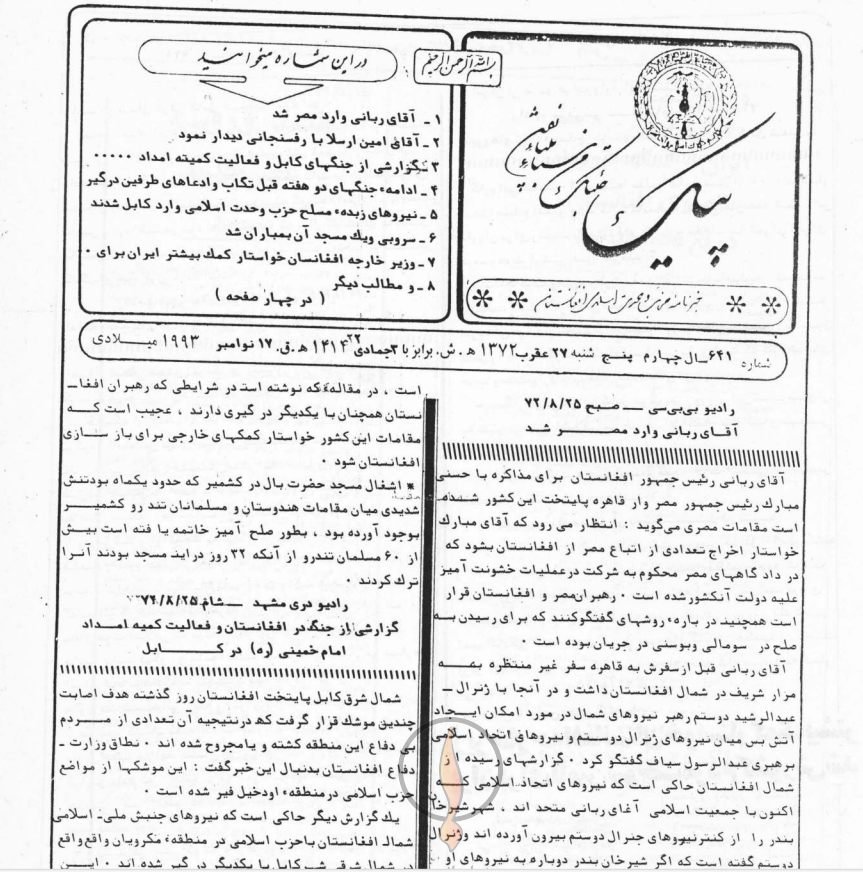 بسم الله الرحمن الرحیم
پیامی
خبرنامه
در این شماره میخوانید
۱ ـ آقای ربانی وارد مصر شد
۲ ـ آقای امین ارسلا با رفسنجانی دیدار نمود
گزارشی از جنگهای کابل و فعالیت کمیته امداد ۰۰۰۰۰
۴ ـ ادامهء جنگهای دو هفته قبل تگاب وادعاهای طرفین درگیر
۵ ـ نیروهای زبدهء مسلح حزب وحدت اسلامی وارد کابل شدند
۶ ـ سروبی ویک مسجد آن بمباران شد
۷ ـ وزیر خارجه افغانسان خواستار کمک بیشتر ایران برای ۰۰
۸ ـ و مطالب دیگر
( در چهار صفحه )
شماره ۶۴۱ ـ سال چهارم پنج شنبه ۲۷ عقرب ۱۳۷۲ ه . ش. برابر با جمادی ۱۴۱۴ ه .ق. ۱۷ نوامبر ۱۹۹۳ میـــلادی
رادیو بی بی سی ــ صبح ۷۲/۸/۲۵
آقای ربانی وارد مصـــر شد
آقای ربانی رئیس جمهور افغانستان برای مذاکره با حسنی
مبارک رئیس جمهور مصر وار قاهره پایتخت این کشور شده
است مقامات مصری میگوید : انتظار می رود که آقای مبارک
خواستار اخراج تعدادی از اتباع مصر از افغانستان بشود که
در داد گاههای مصر محکوم به شرکت درعملیات خشونت آمیز
علیه دولت آنکشور شده است ۰ رهبران مصر و افغانستان قرار
است همچنید در بارهء روشهای گفتگو کنند که برای رسیدن بــه
صلح در سومالی وبوسنی در جریان بوده است ۰
آقای ربانی قبل ازسفرش به قاهره سفر غیر منتظره بـــه
مزار شریف در شمال افغانستان داشت و در آنجا با ژنرال ـ
عبدالرشید دوستم رهبر نیروهای شمال در مورد امکان ایــجاد
آتش بس میان نیروهای ژنرال دوستم و نیروهای اتحاد اسلامی
برهبری عبدالرسول سیاف گفتگو کرد ۰ گزارشهای رسیده از
شمال افغانستان حاکی است که نیروهای اتحاد اسلامی کـــه
اکنون با جمعیت اسلامی آغای ربانی متحد اند ، شهر شیرخان
بندر را از کنترنیوهای جنرال دوستم بیرون آورده اند وژنرال
دوستم گفته است که اگر شیرخان بندر دوباره به نیروهای او
است ۰ در مقاله که نوشته است در شرایطی که رهبران افغا ـ
نستان همچنان با یکدیگر در گیری دارند ، عجیب است کـــه
مقامات این کشور خواستار کمکهای خارجی برای باز ســازی
افغانستان شود ۰
* اشغال مسجد حضرت بال در کشمیر که حدود یکماه بودتنش
شدیدی میان مقامات هندوستان و مسلمانان تند رو کشمیـــر
بوجود آورده بود ، بطور صلح آمیز خاتمه یا فته است بیــش
از ۶۰ مسلمان تندرو از آنکه ۳۲ روز در ایند مسجد بودند آنرا
ترک کردند
رادیو دری مشهد ــ شام ۷۲/۸/۲۵
گزارشی از جنگ در افغانستان و فعالیت کمیه امــداد
امام خمینی (ره) در کـــــابل
شمال شرق کابل پایتخت افغانستان روز گذشته هدف اصابت
چندین موشک قرار گرفت که درنتیجیه آن تعدادی از مـــردم
بی دفاع این منطقه کشته و یا مجروح شده اند ۰ نطاق وزارت ـ
دفاع افغانستان بدنبال این خبر گفت : این موشکها از مواضع
حزب اسلامی درمنطقهء اودخیل فیر شده است ۰
یک گزارش دیگر حاکی است که نیروهای جنبش ملی ـ اسلامی
شمال افغانستان با حزب اسلامی در منطقهء مکرویان واقع واقع
در شمال شرقی شهر کابل با یکدیگر در گیر شده اند ۰ ایــن